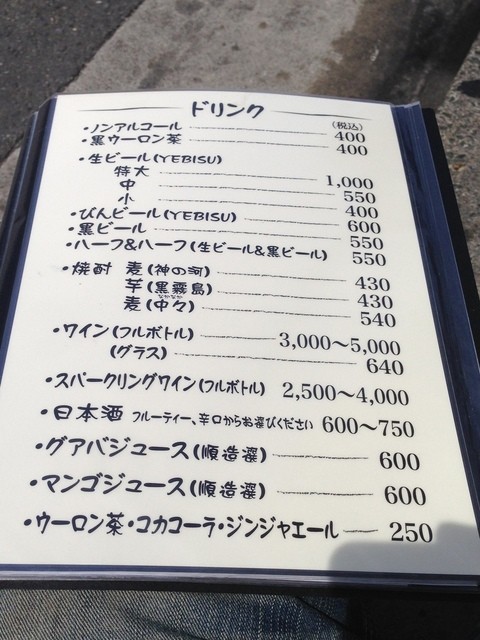 ドリンク
(税込)
・ノンアルコール 400
・黒ウーロン茶 400
・生ビール(YEBISU)
特大 1,000
中 550
小 400
・びんビール(YEBISU) 600
・黒ビール 550
・ハーフ&ハーフ(生ビール&黒ビール) 550
・焼酎 麦(神の河) 430
芋(黒霧島) 430
なかなか
麦(中々) 540
・ワイン(フルボトル) 3,000〜5,000
(グラス) 640
・スパークリングワイン(フルボトル) 2,500〜4,000
・日本酒 フルーティー、辛口からお選びください 600〜750
・グアバジュース(順造選) 600
・マンゴジュース(順造選) 600
・ウーロン茶・コカコーラ・ジンジャエール 250